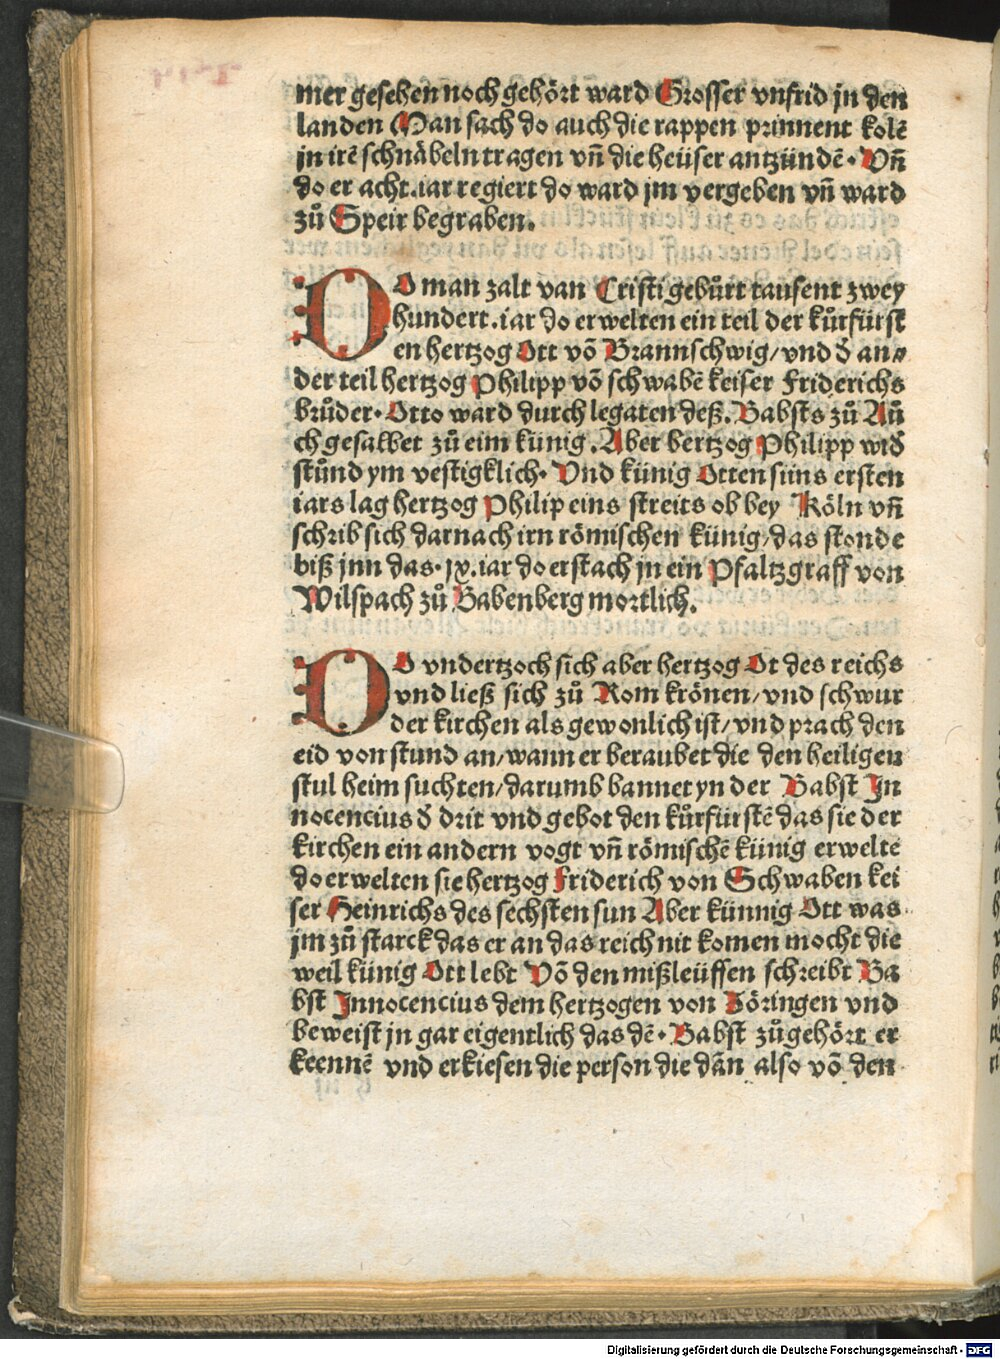 mer gesehen noch gehört ward Grosser vnfrid jn den
landen Man sach do auch die rappen prinnent kolē
jn irē schnäbeln tragen vn̄ die heüser antzündē · Vn̄
do er acht .iar regiert do ward jm vergeben vn̄ ward
zů Speir begraben.
DO man zalt van Cristi gebůrt tausent zwey
hundert .iar do erwelten ein teil der kůrfürst
en hertzog Ott vō Brannschwig/vnd d̄ an⸗
der teil hertzog Philipp vō schwabē keiser Friderichs
brůder · Otto ward durch legaten deß. Babsts zů Aů
ch gesalbet zů eim künig. Aber hertzog Philipp wid̄
stůnd ym vestigklich · Vnd künig Otten suns ersten
iars lag hertzog Philip eins streits ob bey Köln vn̄
schrib sich darnach irn römischen künig/das stonde
biß jnn das · jx. iar do erstach jn ein Pfaltzgraff von
Wilspach zů Babenberg mortlich.
DO vndertzoch sich aber hertzog Ot des reichs
vnd ließ sich zů Rom krönen/vnd schwur
der kirchen als gewonlich ist/vnd prach den
eid von stund an/wann er beraubet die den heiligen
stul heim suchten/darumb bannet yn der Babst In
nocencius d̄ drit vnd gebot den kůrfürstē das sie der
kirchen ein andern vogt vn̄ römischē künig erweltē
do erwelten sie hertzog Friderich von Schwaben kei
ser Heinrichs des sechsten sun Aber künnig Ott was
jm zů starck das er an das reich nit komen mocht die
weil künig Ott lebt Vō den mißleüffen schreibt Ba
bst Innocencius dem hertzogen von Zöringen vnd
beweist jn gar eigentlich das dē · Babst zůgehört er
keennē vnd erkiesen die person die dān also vō den
Digitalisierung gefördert durch die Deutsche Forschungsgemeinschaft - DFG